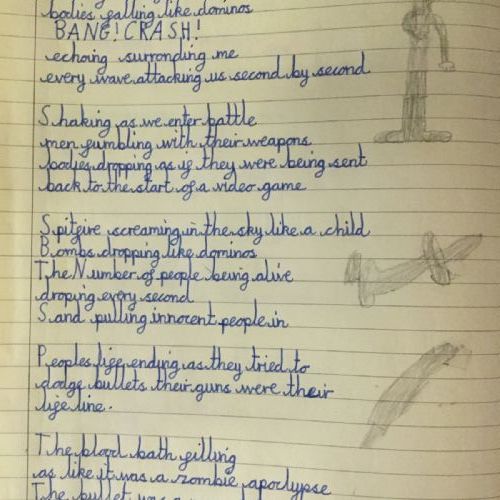 bodies falling like dominos
BANG! CRASH!
echoing surronding me
every wave attacking us second by second
Shaking as we enter battle
men fumbling with their weapons
bodies dropping as if they were being sent
back to the start of a video game
Spitfire screaming in the sky like a child
Bombs dropping like dominos
The Number of people being alive
droping every second
Sand pulling innocent people in
Peoples life ending as they tried to
dodge bullets their guns were their
life line.
The blood bath filling
as like it was a zombie apoclypse
The bullet was a